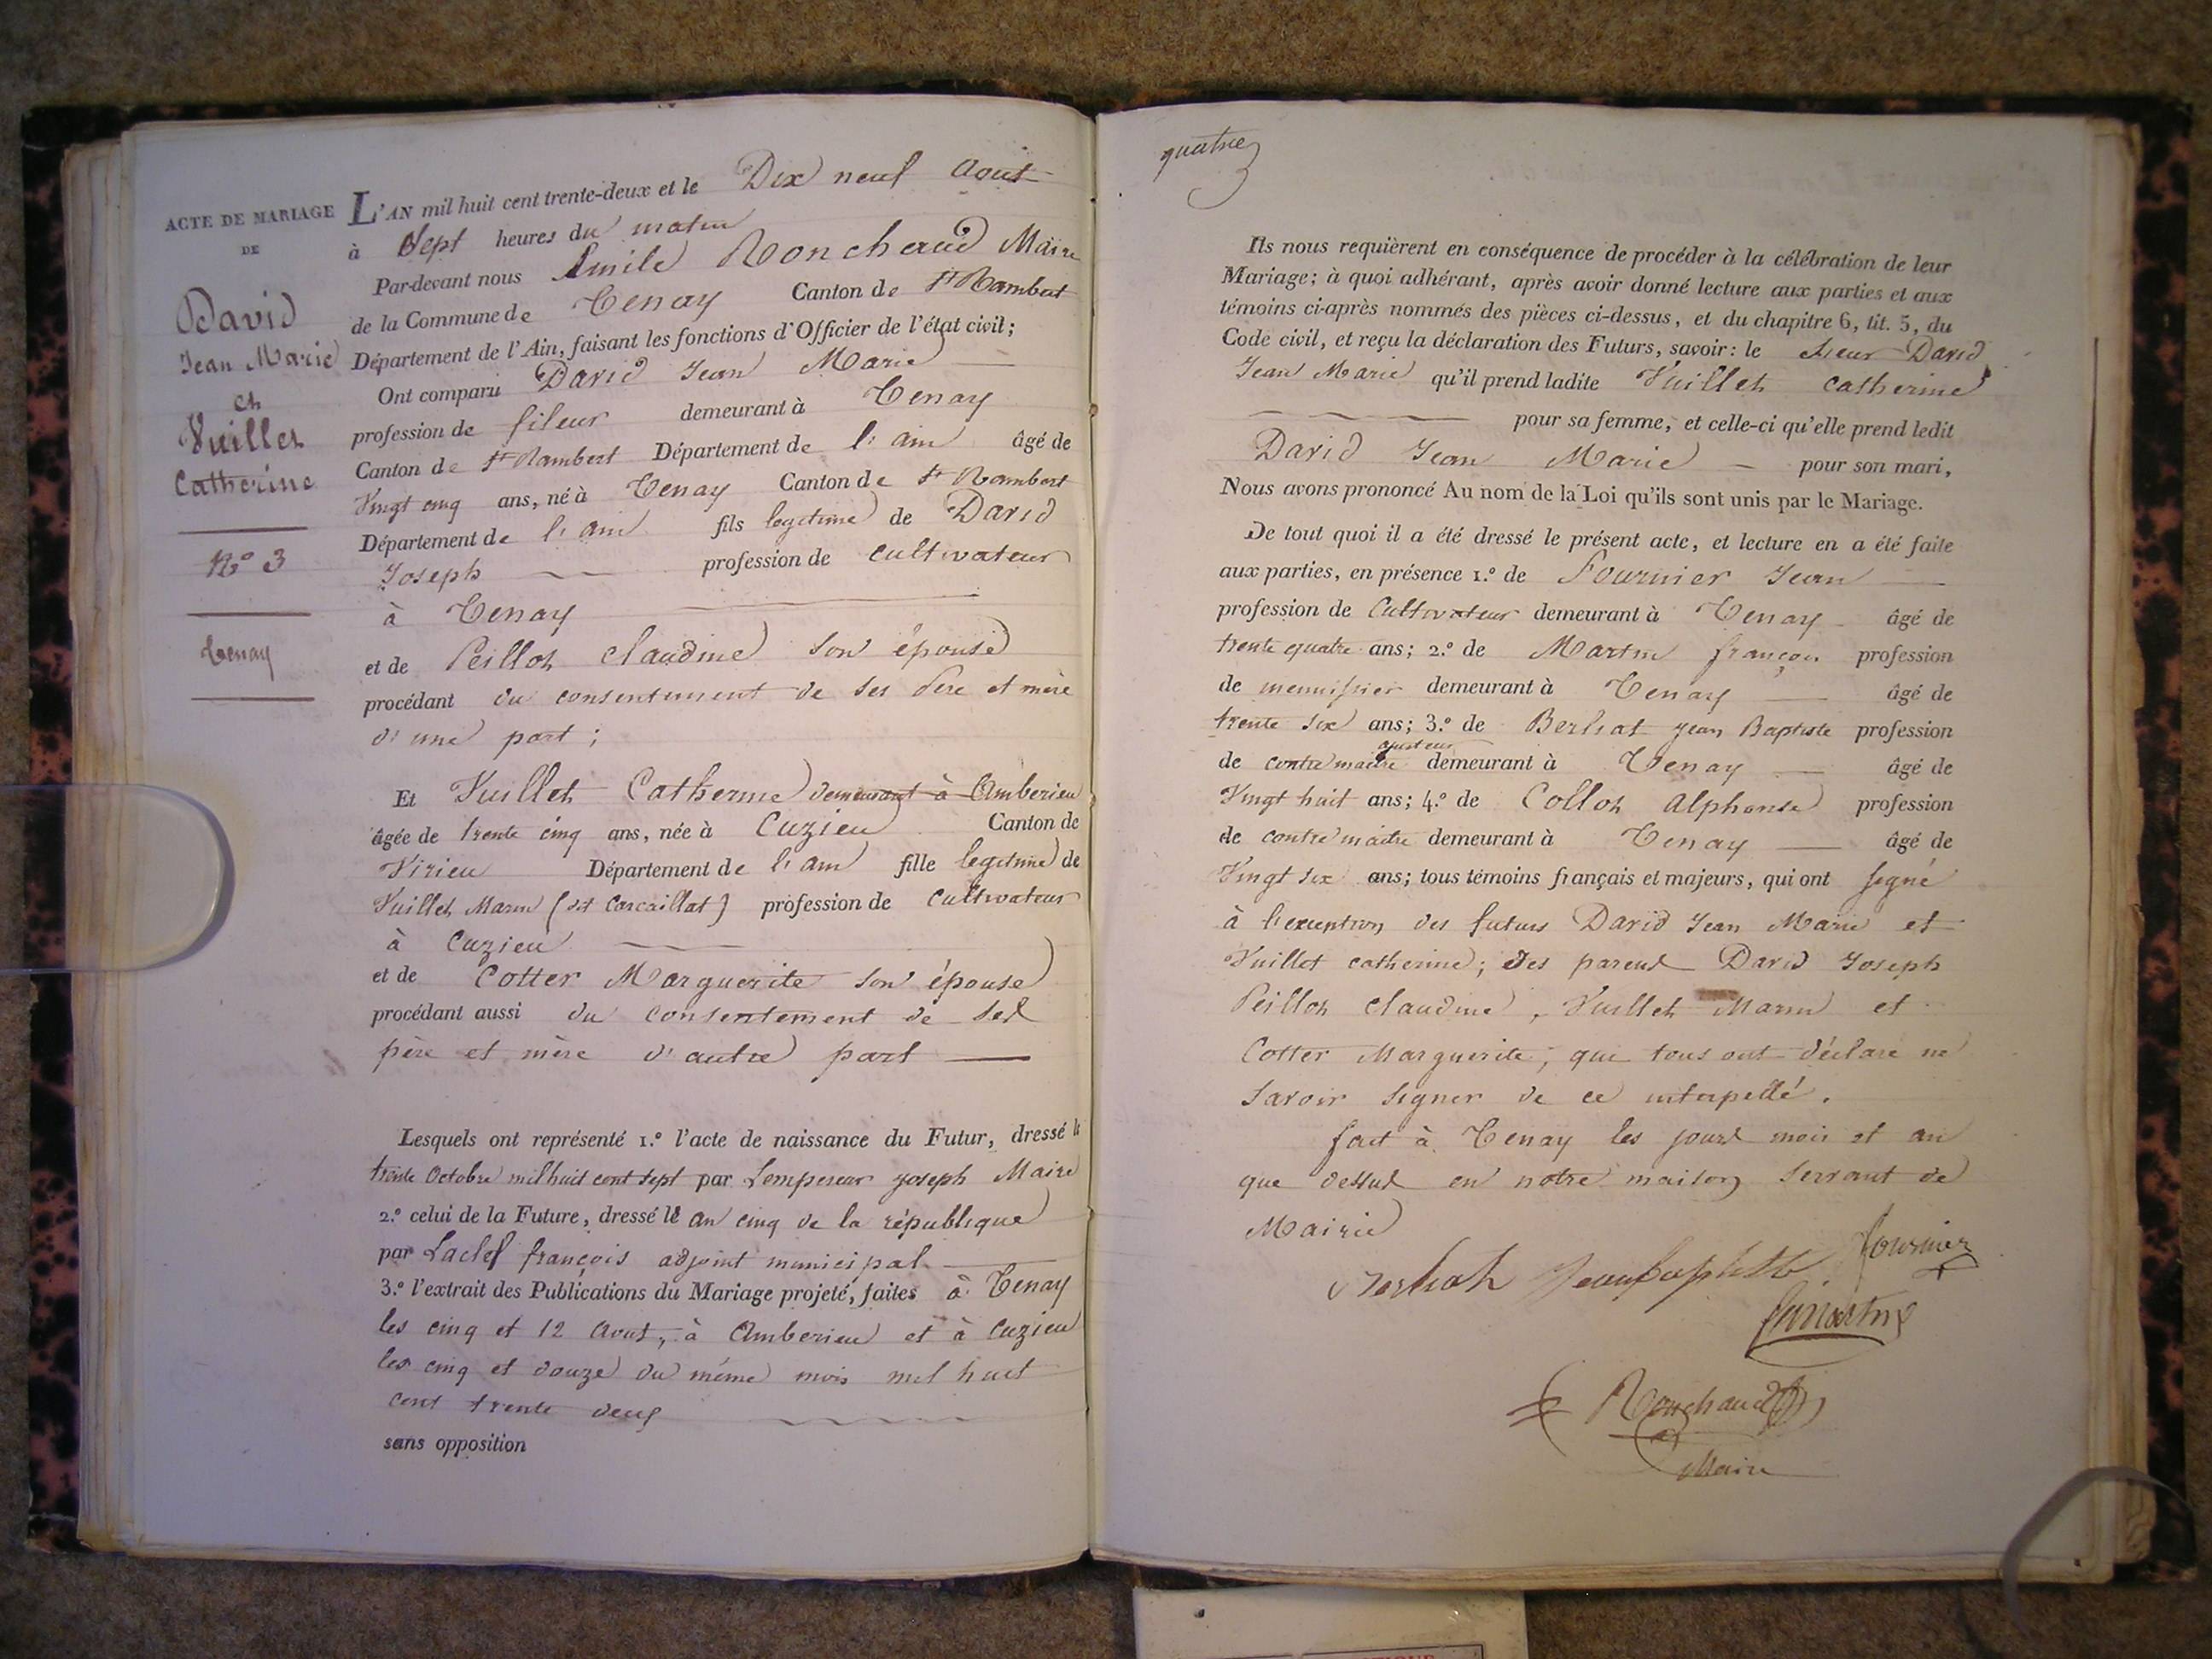 ACTE DE MARIAGE
DE
David
Jean Marie
et
Vuillet
Catherine
N.o 3
Tenay
L'AN mil huit cent trente-deux et le Dix neuf Aout
à Sept heures du matin
Par-devant nous Emile Ronchaud Maire
de la Commune de Tenay Canton de St Rambert
Département de l'Ain, faisant les fonctions d'Officier de l'état civil;
Ont comparu David Jean Marie
profession de fileur demeurant à Tenay
Canton de St Rambert Département de l'ain âgé de
Vingt cinq ans, né à Tenay Canton de St Rambert
Département de l'ain fils legitime de David
Joseph profession de cultivateur
à Tenay
et de Peillot claudine son épouse
procédant du consentement de ses Père et mère
d'une part;
Et Vuillet Catherine demeurant à Amberieu
âgée de trente cinq ans, née à Cuzieu Canton de
Virieu Département de l'ain fille legitime de
Vuillet Marin (dit Corcaillat) profession de Cultivateur
à Cuzieu
et de Cotter Marguerite son épouse
procédant aussi du consentement de ses
père et mère d'autre part
Lesquels ont représenté 1.o l'acte de naissance du Futur, dressé le
trente Octobre mil huit cent sept par Lempereur Joseph Maire
2.o celui de la Future, dressé le an cinq de la république
par Laclef françois adjoint municipal
3.o l'extrait des Publications du Mariage projeté, faites à Tenay
les cinq et 12 Aout, à Amberieu et à Cuzieu
les cinq et douze du même mois mil huit
cent trente deux
sans opposition
quatre
Ils nous requièrent en conséquence de procéder à la célébration de leur
Mariage; à quoi adhérant, après avoir donné lecture aux parties et aux
témoins ci-après nommés des pièces ci-dessus, et du chapitre 6, tit. 5, du
Code civil, et reçu la déclaration des Futurs, savoir: le sieur David
Jean Marie qu'il prend ladite Vuillet catherine
pour sa femme, et celle-ci qu'elle prend ledit
David Jean Marie pour son mari,
Nous avons prononcé Au nom de la Loi qu'ils sont unis par le Mariage.
De tout quoi il a été dressé le présent acte, et lecture en a été faite
aux parties, en présence 1.o de Fournier Jean
profession de Cultivateur demeurant à Tenay âgé de
trente quatre ans; 2.o de Martin françois profession
de menuisier demeurant à Tenay âgé de
trente six ans; 3.o de Berliat Jean Baptiste profession
ajusteur
de contre maitre demeurant à Tenay âgé de
Vingt huit ans; 4.o de Collot Alphonse profession
de contre maitre demeurant à Tenay âgé de
Vingt six ans; tous témoins français et majeurs, qui ont signé
à l'exception des futurs David Jean Marie et
Vuillet catherine; des parens David Joseph
Peillot claudine, Vuillet Marin et
Cotter Marguerite, qui tous ont déclaré ne
savoir signer de ce interpellé.
fait à Tenay les jours mois et an
que dessus en notre maison servant de
Mairie
Berliat Jean baptiste Fournier
f martin
Ronchaud
Maire